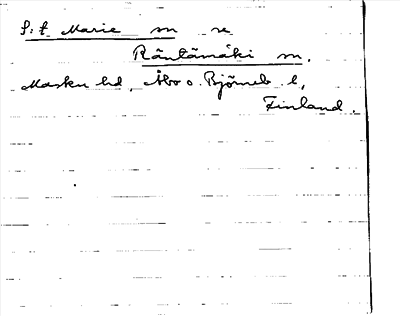 S:t Marie sn se
Räntämäki sn,
Masku hd, Åbo o. Björneb. l,
Finland.